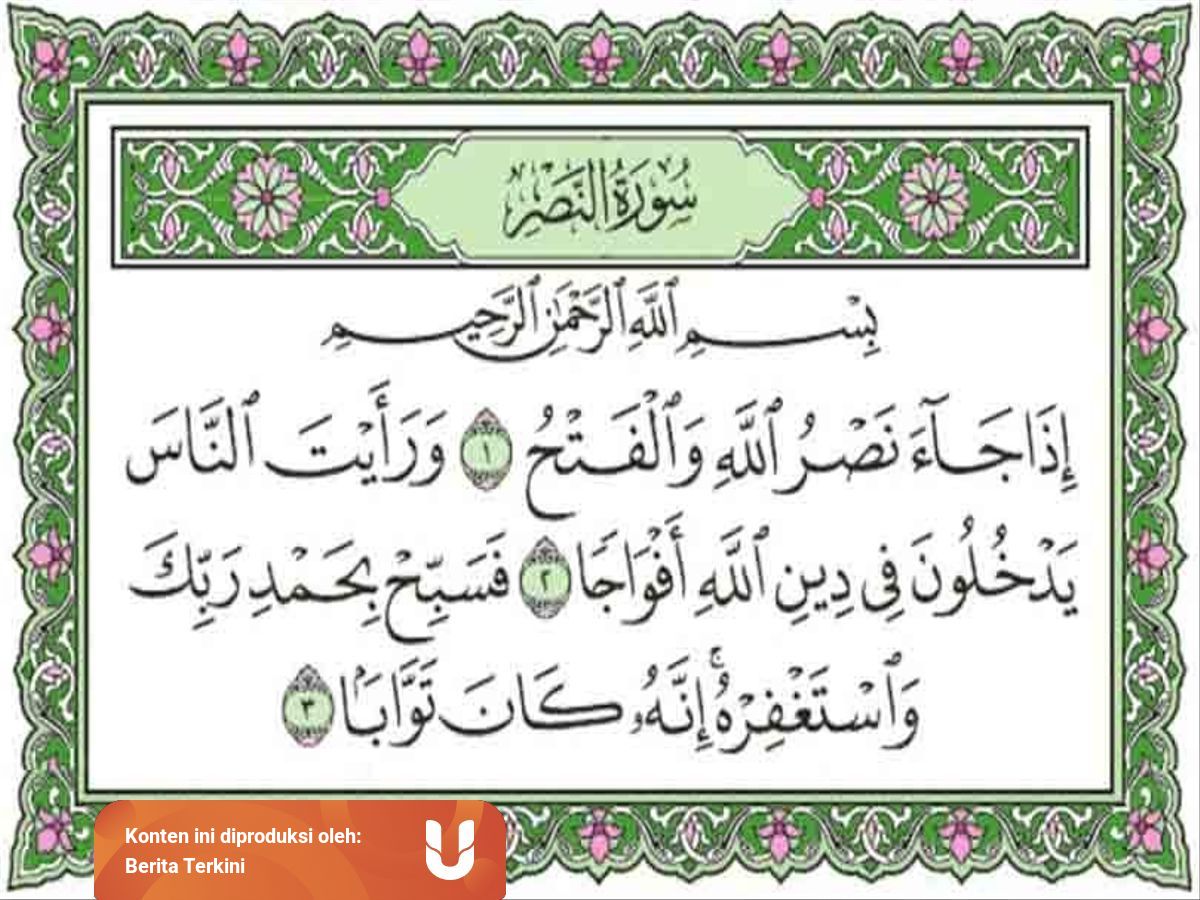 سُورَةُ النَّصْرِ
بِسْمِ ٱللَّهِ ٱلرَّحْمَٰنِ ٱلرَّحِيمِ
إِذَا جَآءَ نَصْرُ ٱللَّهِ وَٱلْفَتْحُ ١ وَرَأَيْتَ ٱلنَّاسَ
يَدْخُلُونَ فِى دِينِ ٱللَّهِ أَفْوَاجًا ٢ فَسَبِّحْ بِحَمْدِ رَبِّكَ
وَٱسْتَغْفِرْهُ ۚ إِنَّهُۥ كَانَ تَوَّابًۢا ٣
Konten ini diproduksi oleh:
Berita Terkini